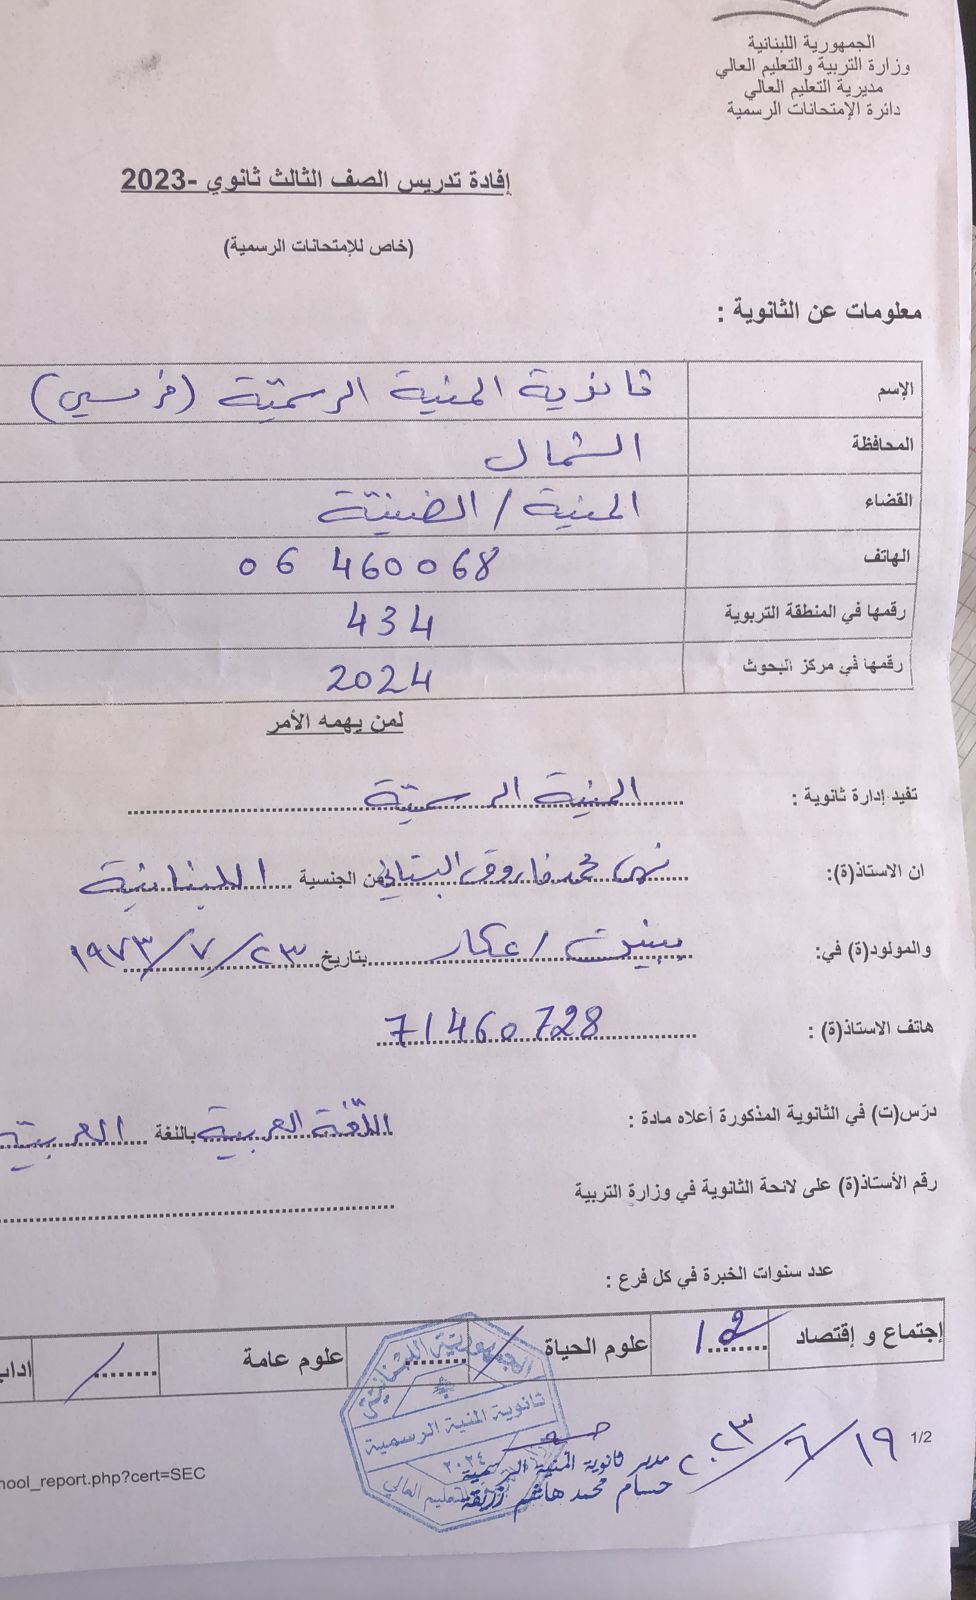 الجمهورية اللبنانية
وزارة التربية والتعليم العالي
مديرية التعليم العالي
دائرة الإمتحانات الرسمية
إفادة تدريس الصف الثالث ثانوي -2023
(خاص للإمتحانات الرسمية)
معلومات عن الثانوية :
الإسم ثانوية المنية الرسميّة (فرنسي)
المحافظة الشمال
القضاء المنية / الضنيّة
الهاتف 06 460068
رقمها في المنطقة التربوية 434
رقمها في مركز البحوث 2024
لمن يهمه الأمر
تفيد إدارة ثانوية : المنية الرسميّة
ان الاستاذ(ة): نهى محمد فاروق البستاني من الجنسية اللبنانية
والمولود(ة) في: ببنين / عكار بتاريخ ٢٣/٧/١٩٧٣
هاتف الاستاذ(ة) : 71460728
درّس(ت) في الثانوية المذكورة أعلاه مادة : اللّغة العربية باللغة العربيّة
رقم الأستاذ(ة) على لائحة الثانوية في وزارة التربية
عدد سنوات الخبرة في كل فرع :
إجتماع و إقتصاد علوم الحياة / علوم عامة / اداب
الجمهورية اللبنانية
ثانوية المنية الرسمية
٢٠٢٤
التعليم العالي
١٩/٦/٢٠٢٣
مدير ثانوية المنية الرسمية
حسام محمد هاشم زريقة
1/2
hool_report.php?cert=SEC